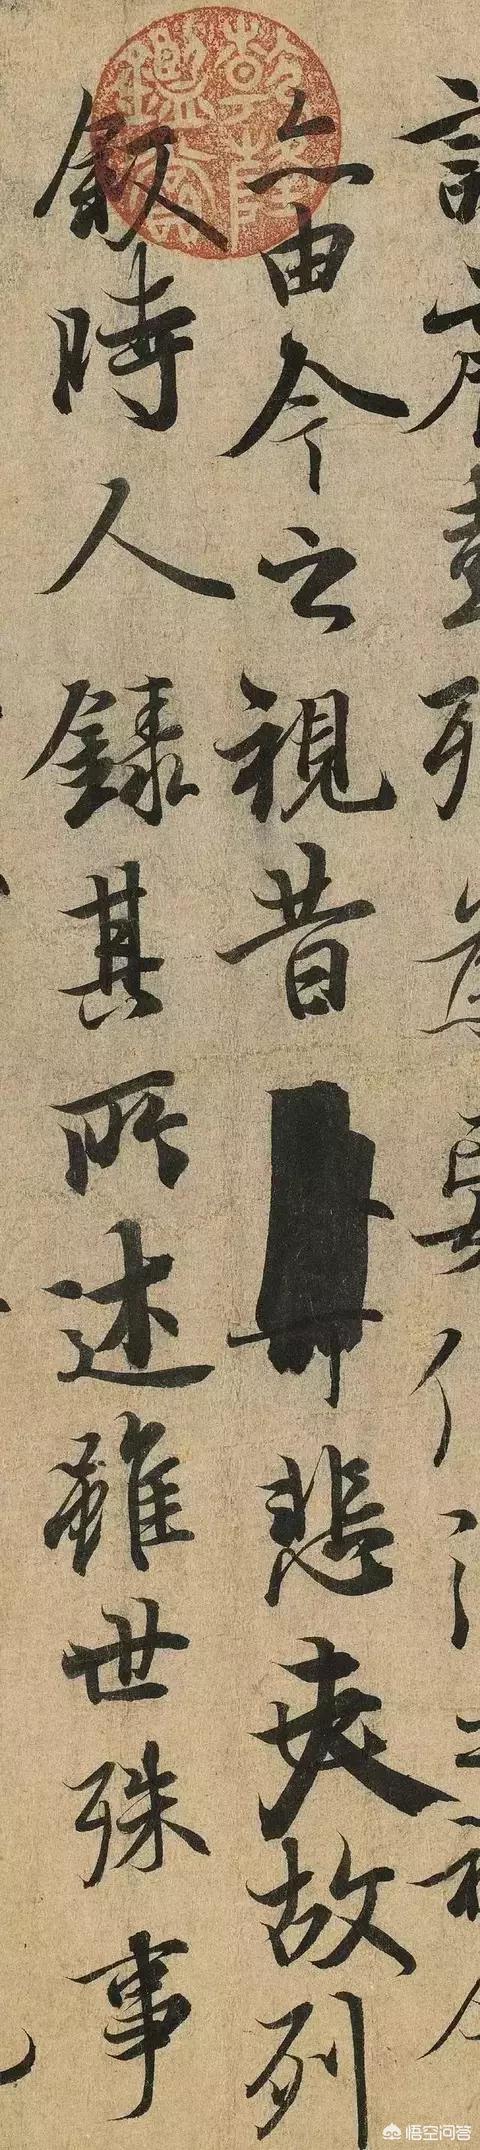 亦由今之視昔悲夫故列
敘時人錄其所述雖世殊事
乾隆鑑賞
悟空问答